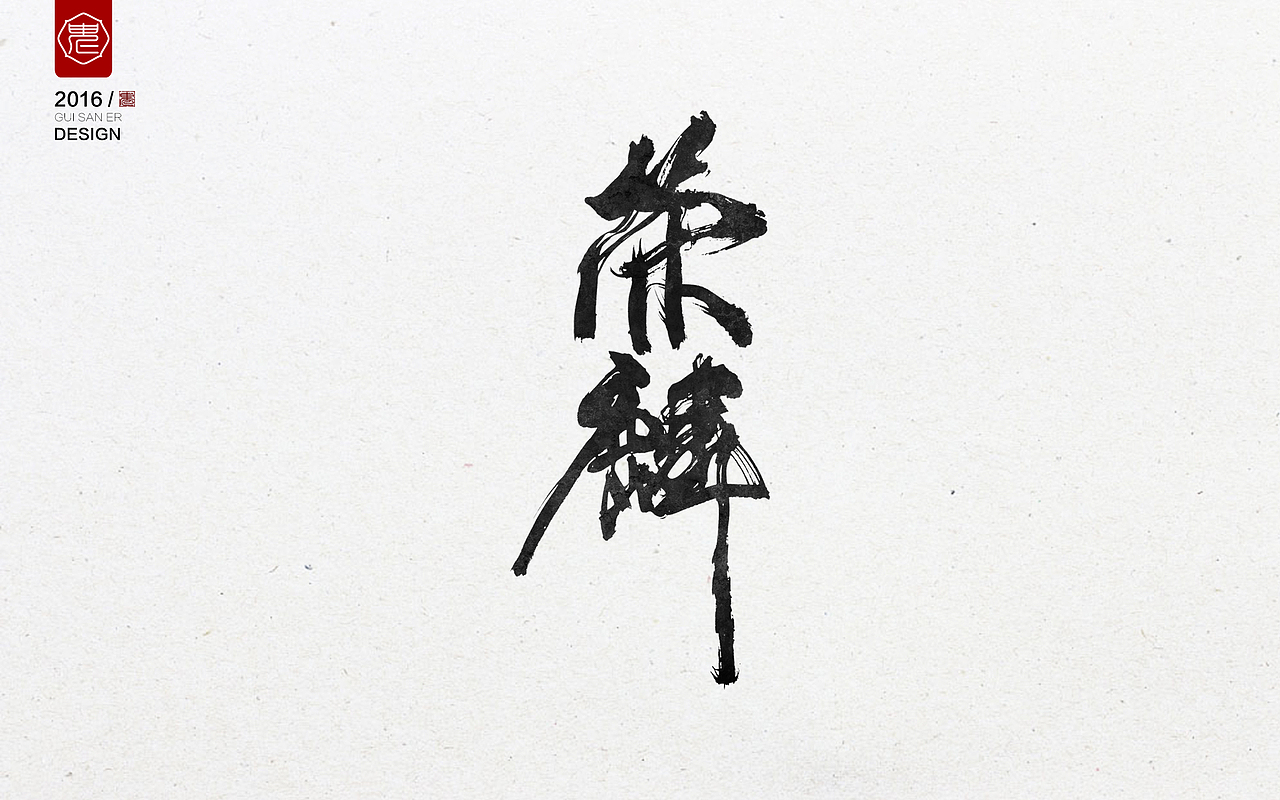 2016 /
GUI SAN ER
DESIGN
荣
麟